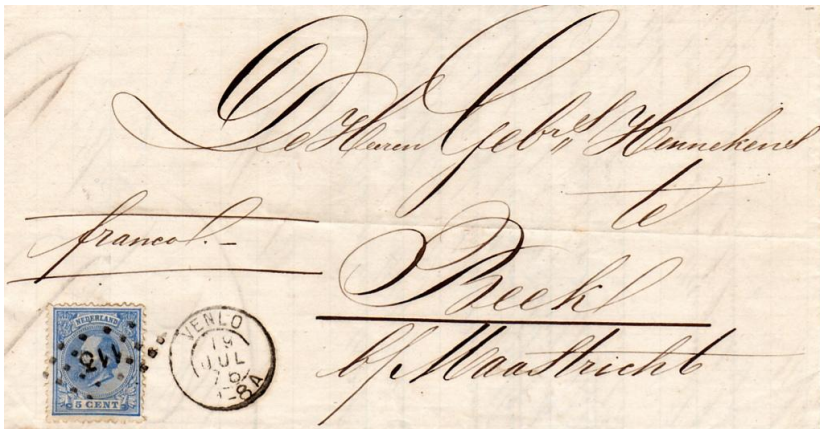 De Heeren Gebrs Hennekens
te
franco.-
Beek
b/ Maastricht
NEDERLAND
113
5 CENT
VENLO
19
JUL
76
8A